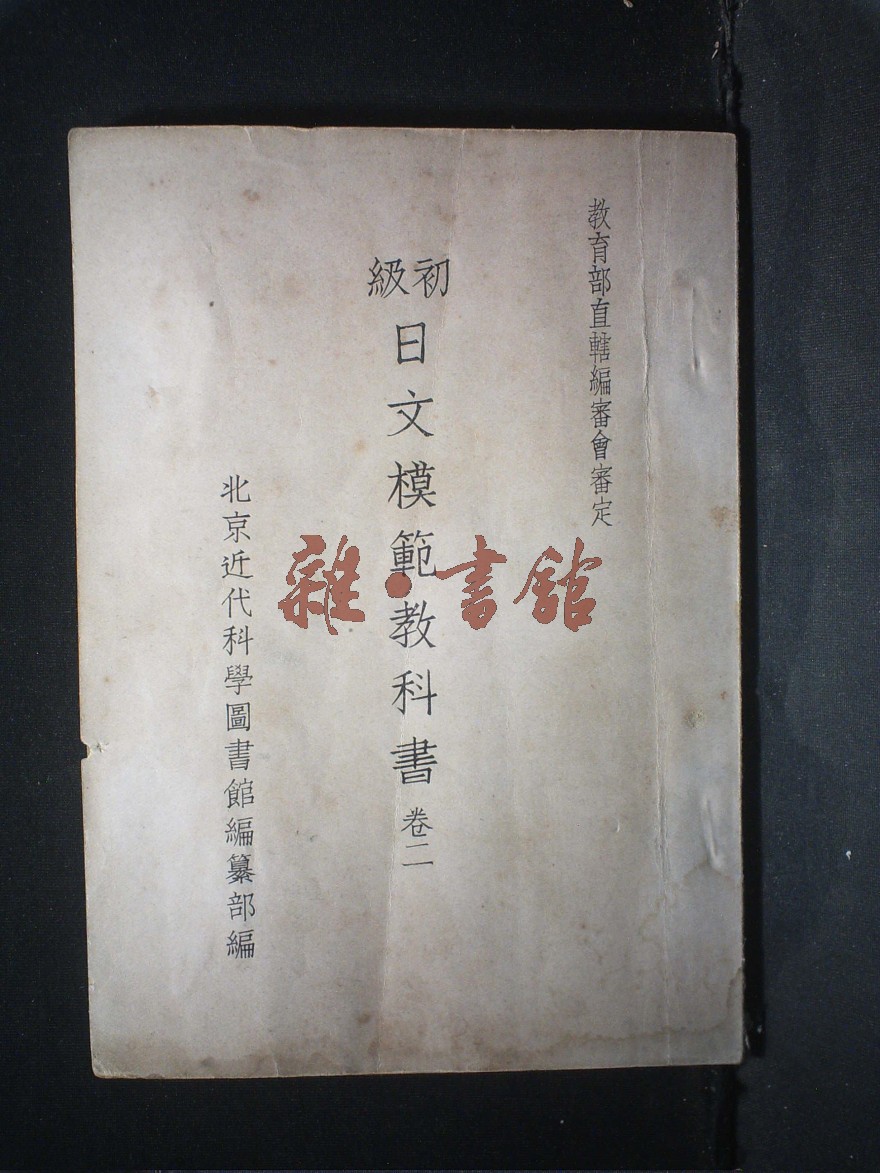 教育部直轄編審會審定
初級
日文模範教科書 卷二
北京近代科學圖書館編纂部編
雜·書館